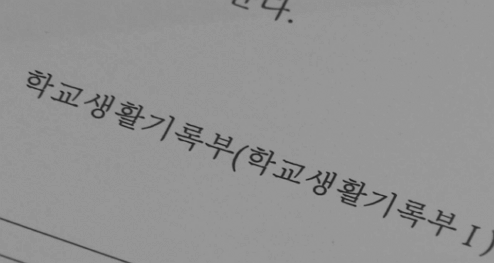 다.
학교생활기록부(학교생활기록부 I)